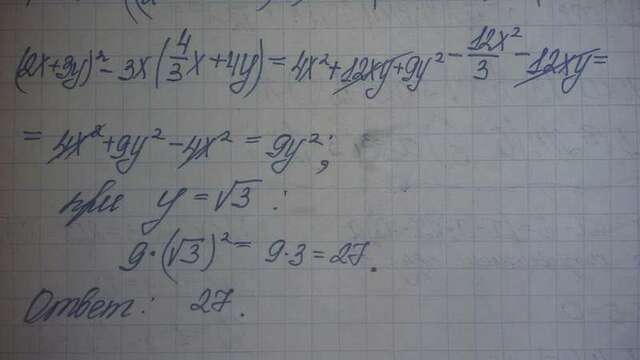 (2x+3y)² - 3x(4/3x+4y) = 4x²+12xy+9y² - 12x²/3 - 12xy =
= 4x²+9y²-4x² = 9y²;
при y = √3 :
9·(√3)² = 9·3 = 27.
Ответ: 27.